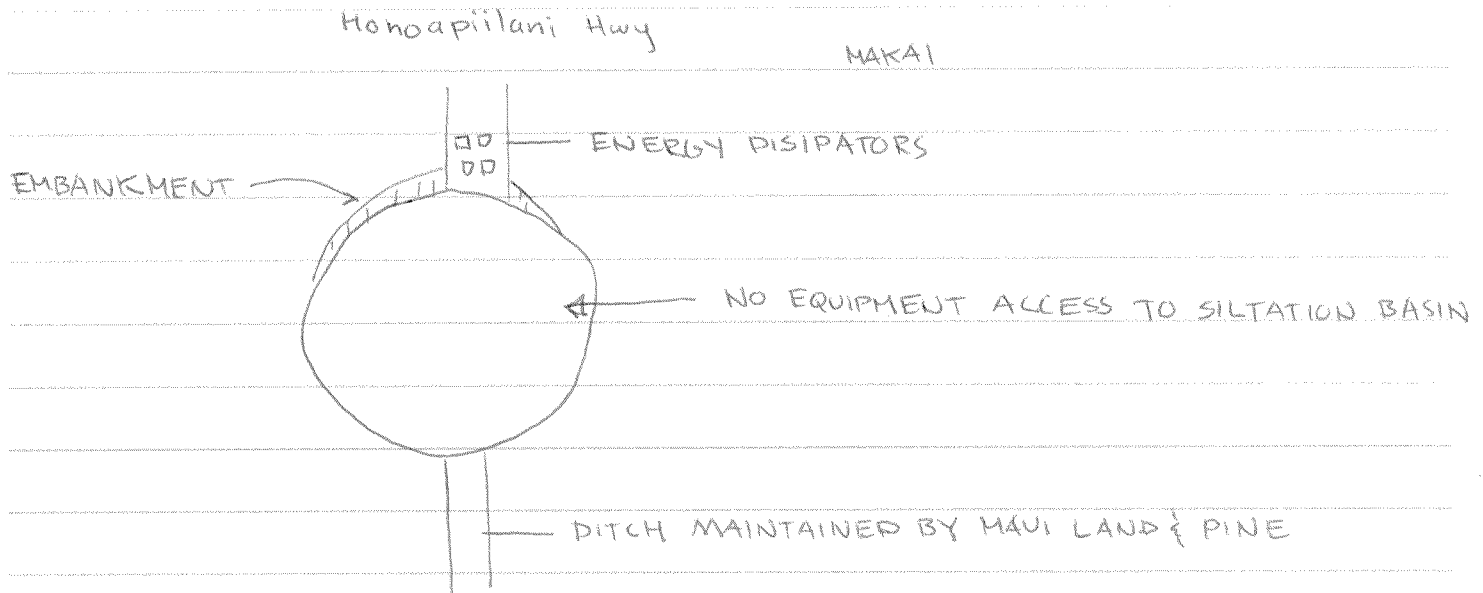 Honoapiilani Hwy
MAKAI
ENERGY DISIPATORS
EMBANKMENT
NO EQUIPMENT ACCESS TO SILTATION BASIN
DITCH MAINTAINED BY MAUI LAND & PINE